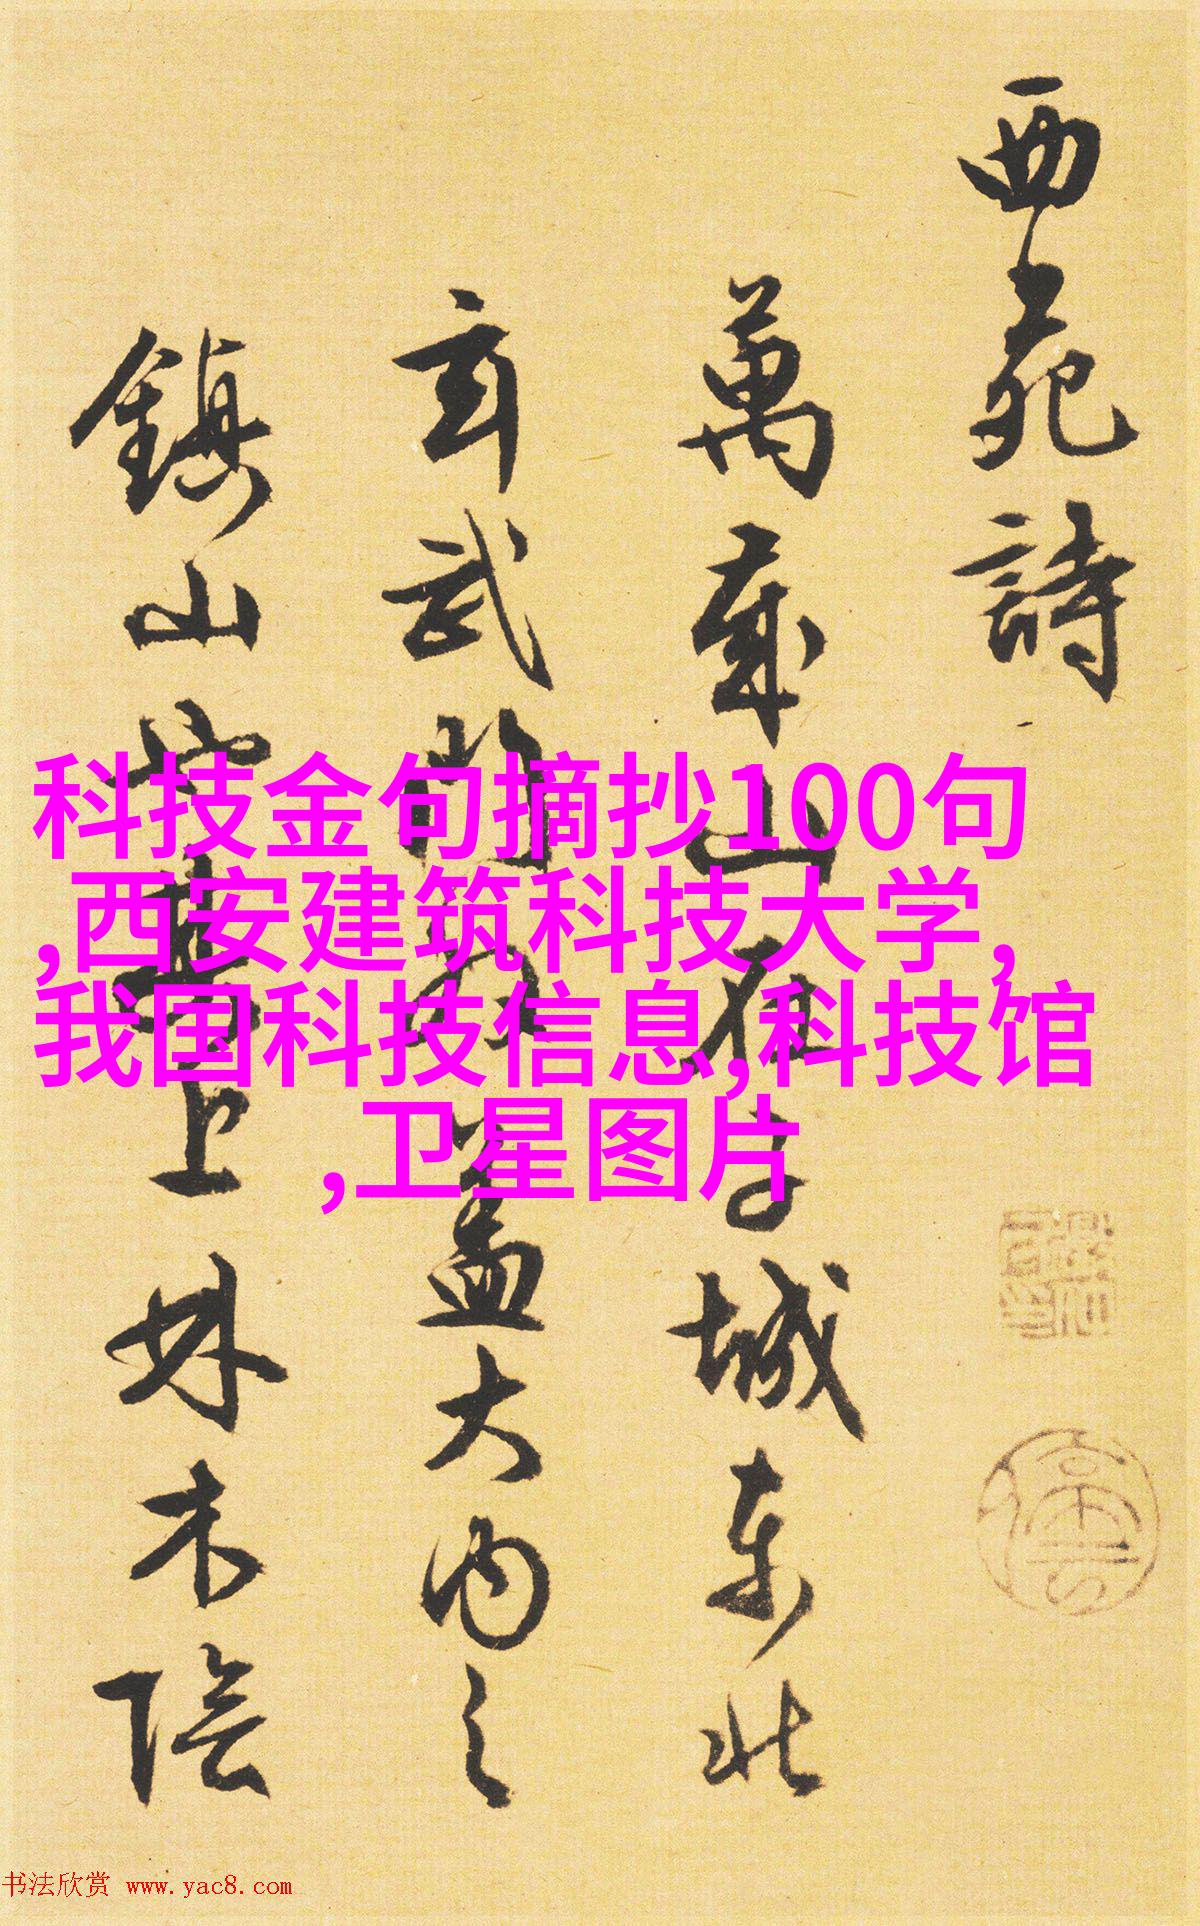 西苑詩
萬歲山在子城東北
玄武門外蓋大內之
鎮山也上林木陰
科技金句摘抄100句
,西安建筑科技大学,
我国科技信息,科技馆
,卫星图片
书法欣赏 www.yac8.com